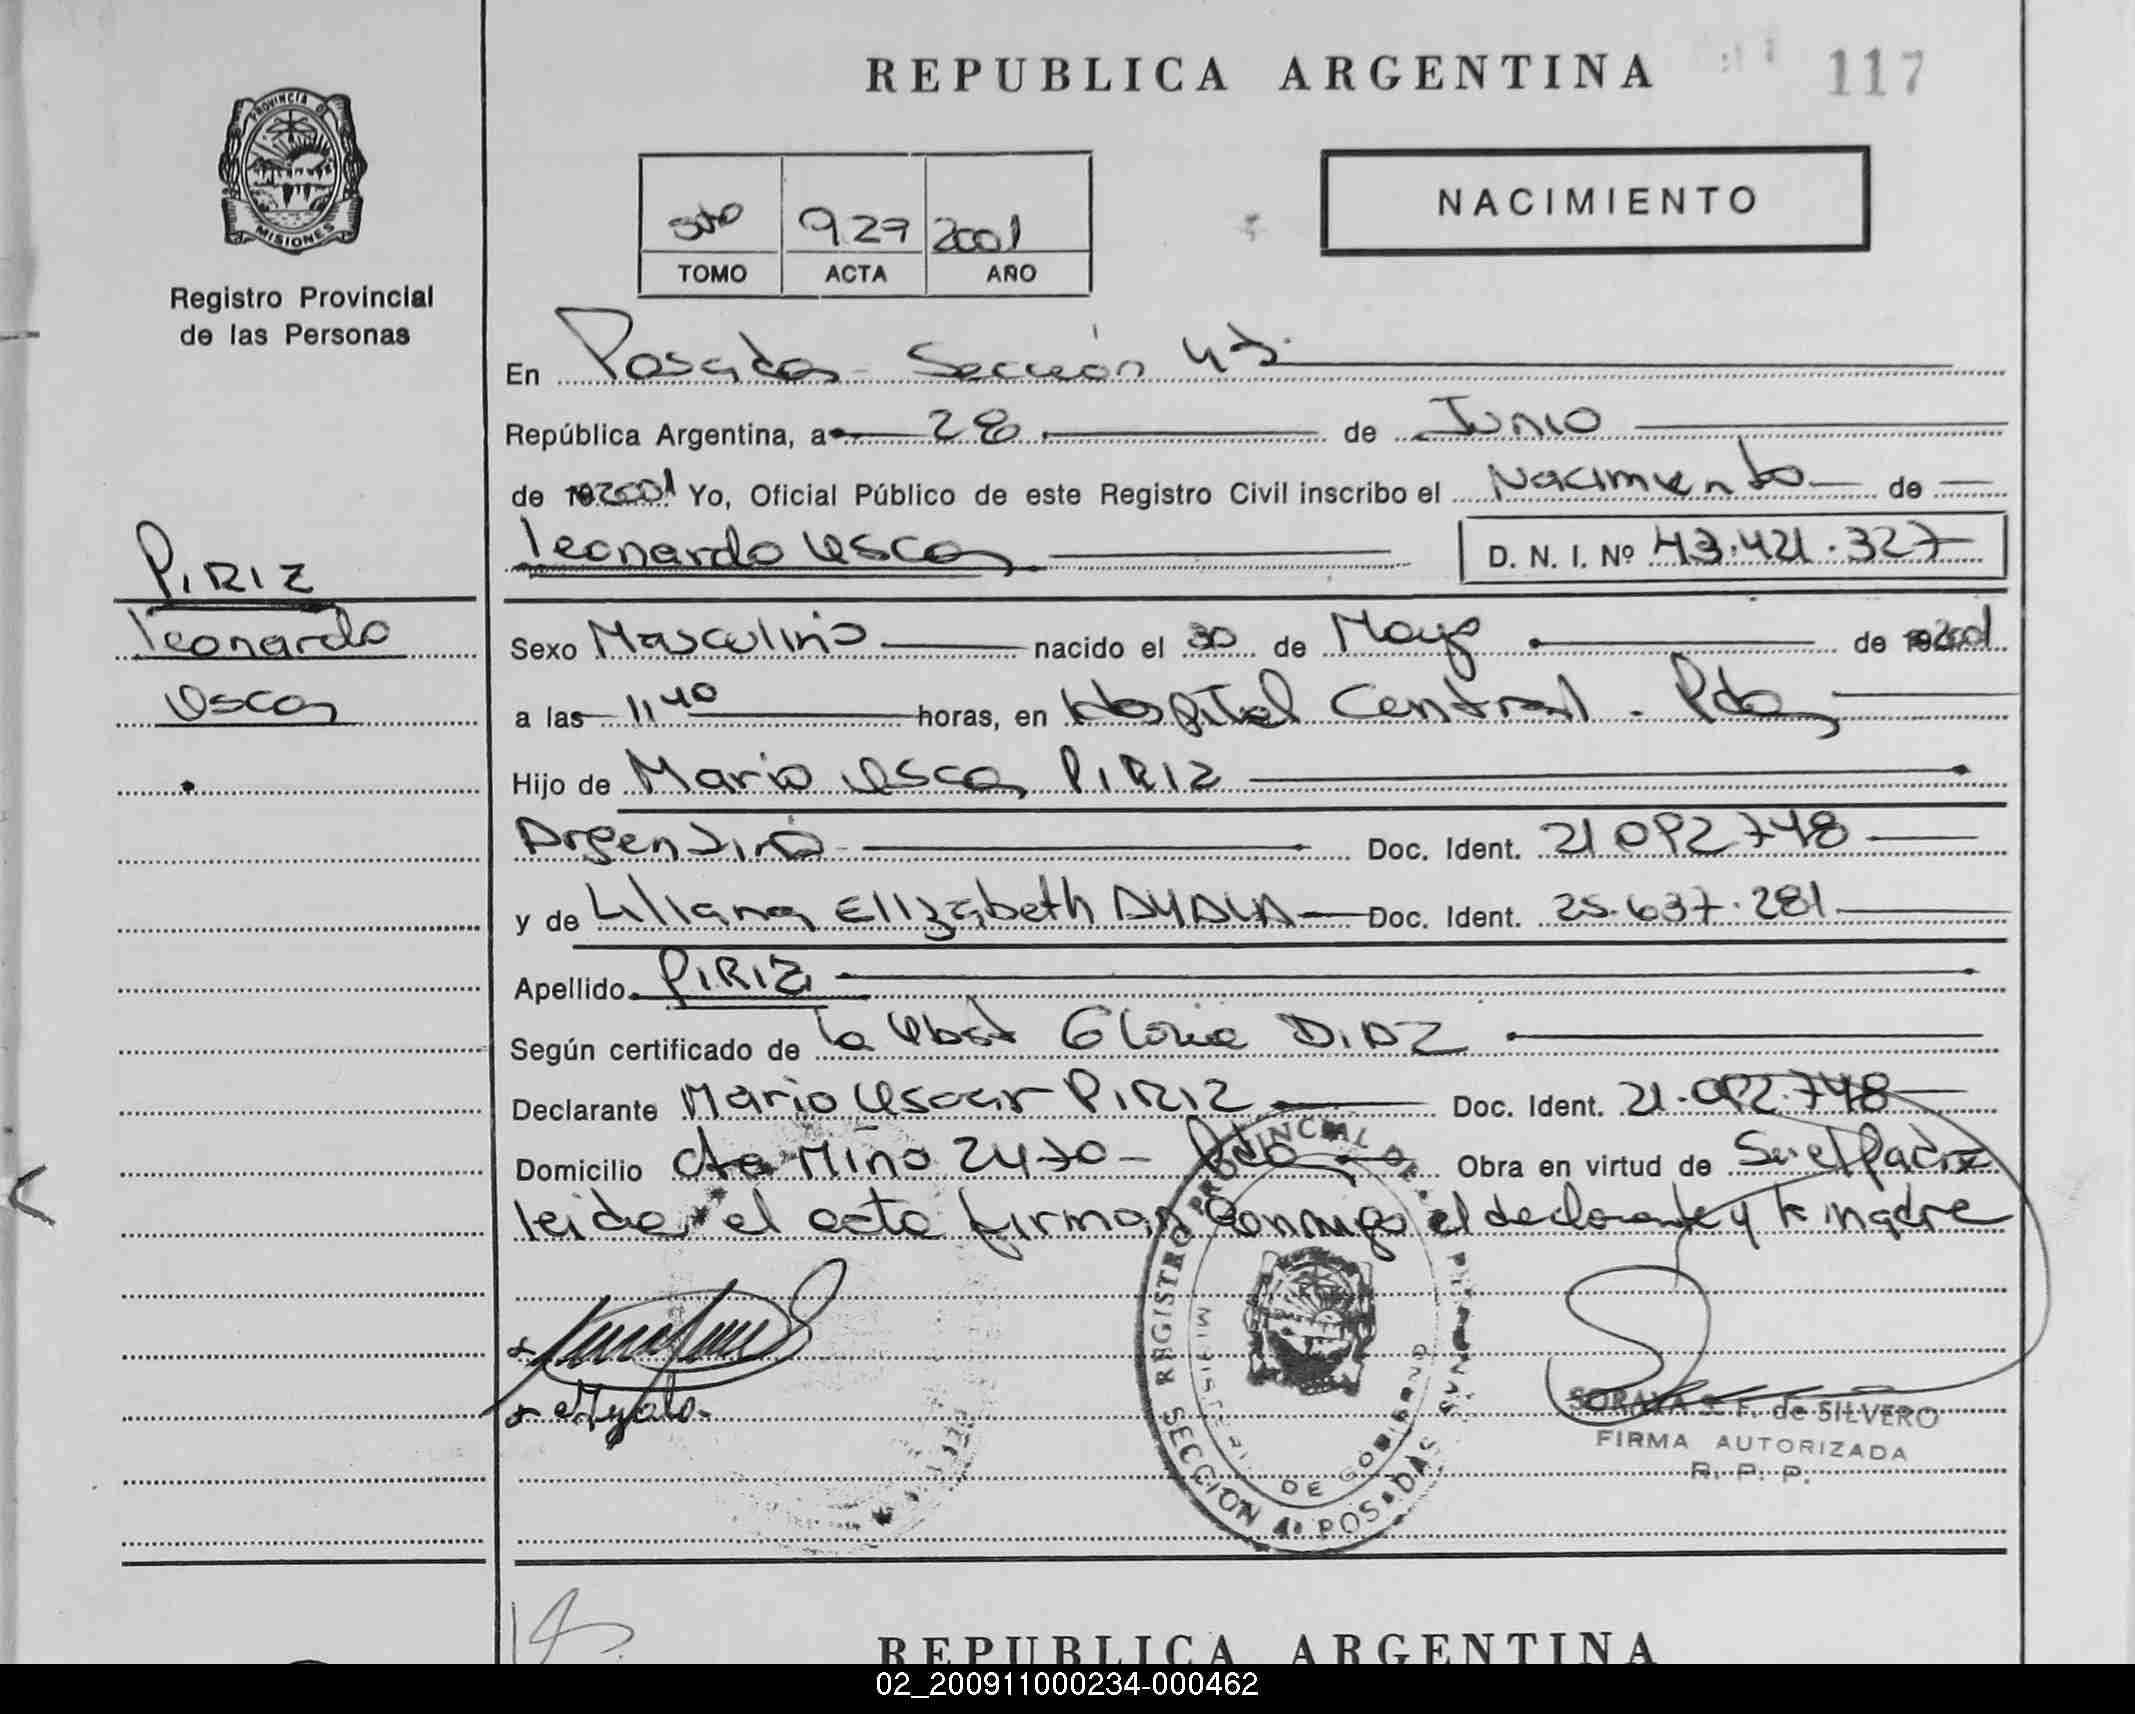 REPUBLICA ARGENTINA
117
PROVINCIA DE
MISIONES
Registro Provincial
de las Personas
NACIMIENTO
5to 927 2001
TOMO ACTA AÑO
En Posadas - Sección 4ta.
República Argentina, a 28 de Junio
de 2001 Yo, Oficial Público de este Registro Civil inscribo el Nacimiento de
Leonardo Oscar D. N. I. Nº 43.421.327
PIRIZ
Leonardo
Oscar
Sexo Masculino nacido el 30 de Mayo de 2001
a las 11,40 horas, en Hospital Central - Pdas
Hijo de Mario Oscar PIRIZ
Argentino Doc. Ident. 21.092.748
y de Liliana Elizabeth AYALA Doc. Ident. 25.637.281
Apellido PIRIZ
Según certificado de la Obst Gloria DIAZ
Declarante Mario Oscar PIRIZ Doc. Ident. 21.092.748
Domicilio Cta Miño 2470 - Pdas Obra en virtud de Ser el Padre
leida el acta firman conmigo el declarante y la madre
REGISTRO PROVINCIAL DE
MINISTERIO DE GOBIERNO
SECCION 4a POSADAS
SORAYA S. F. de SILVERO
FIRMA AUTORIZADA
R. P. P.
REPUBLICA ARGENTINA
02_200911000234-000462